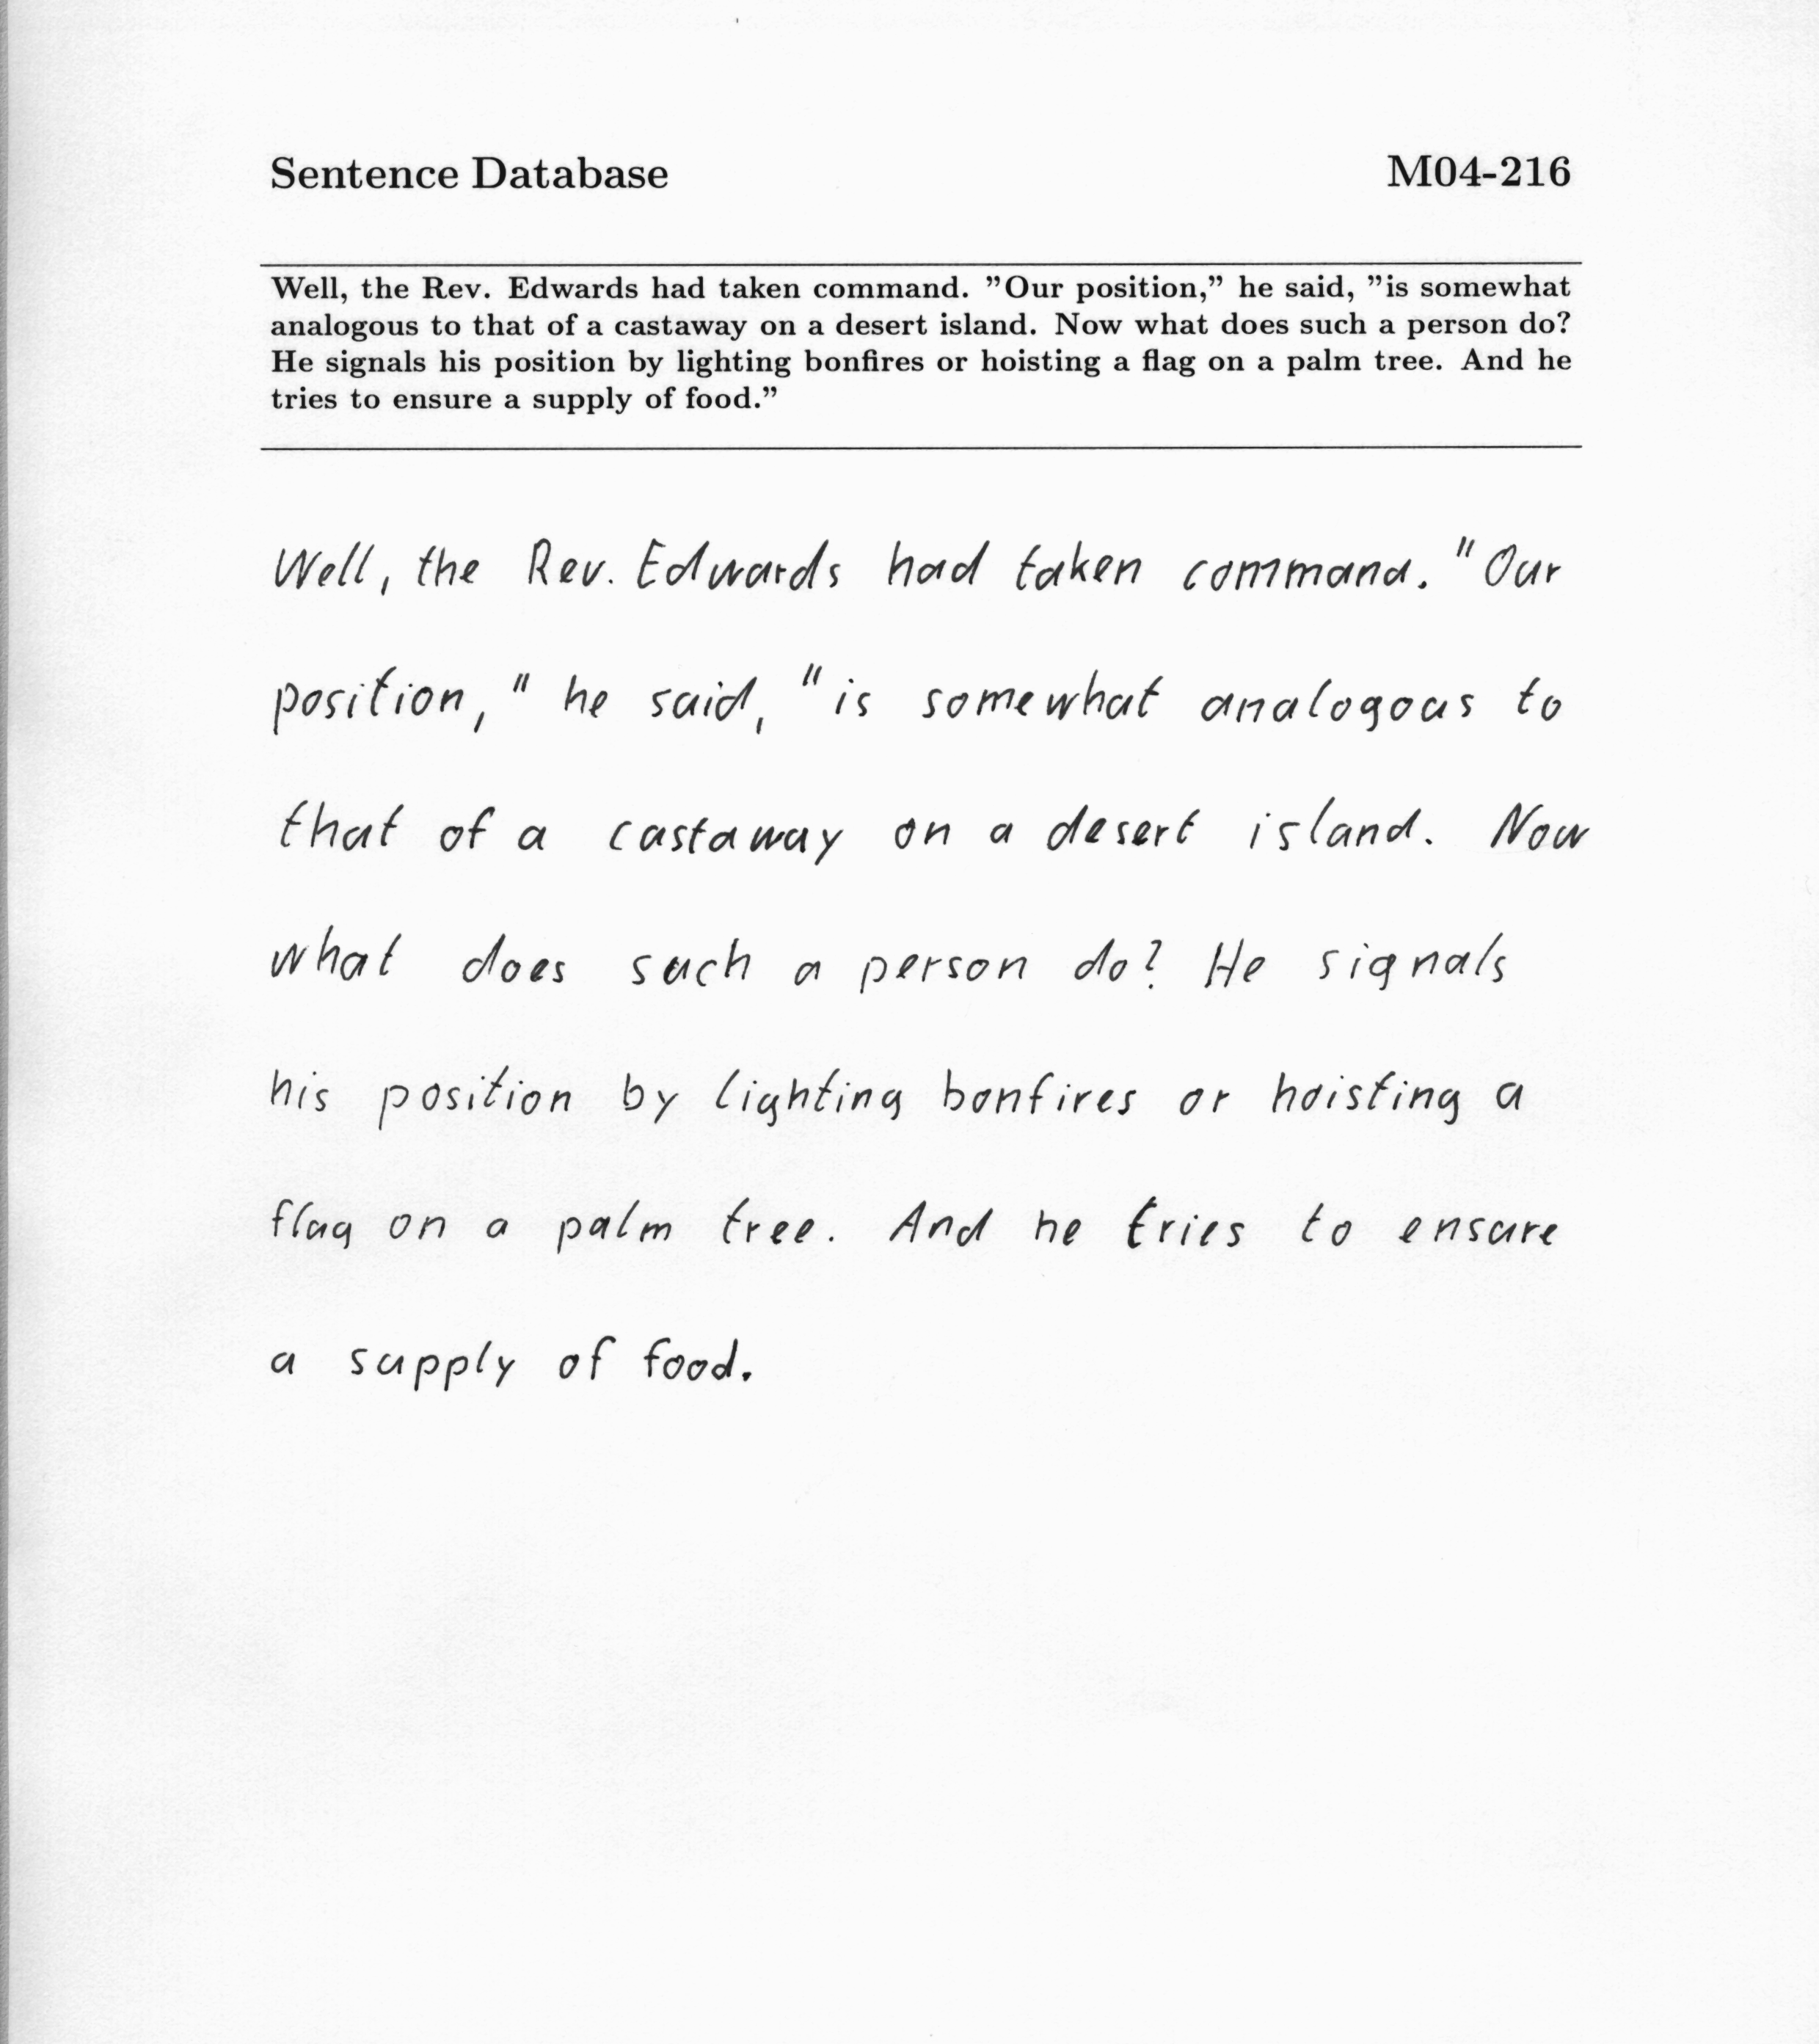 Sentence Database M04-216
Well, the Rev. Edwards had taken command. ”Our position,” he said, ”is somewhat
analogous to that of a castaway on a desert island. Now what does such a person do?
He signals his position by lighting bonfires or hoisting a flag on a palm tree. And he
tries to ensure a supply of food.”
Well, the Rev. Edwards had taken command. "Our
position," he said, "is somewhat analogous to
that of a castaway on a desert island. Now
what does such a person do? He signals
his position by lighting bonfires or hoisting a
flag on a palm tree. And he tries to ensure
a supply of food.